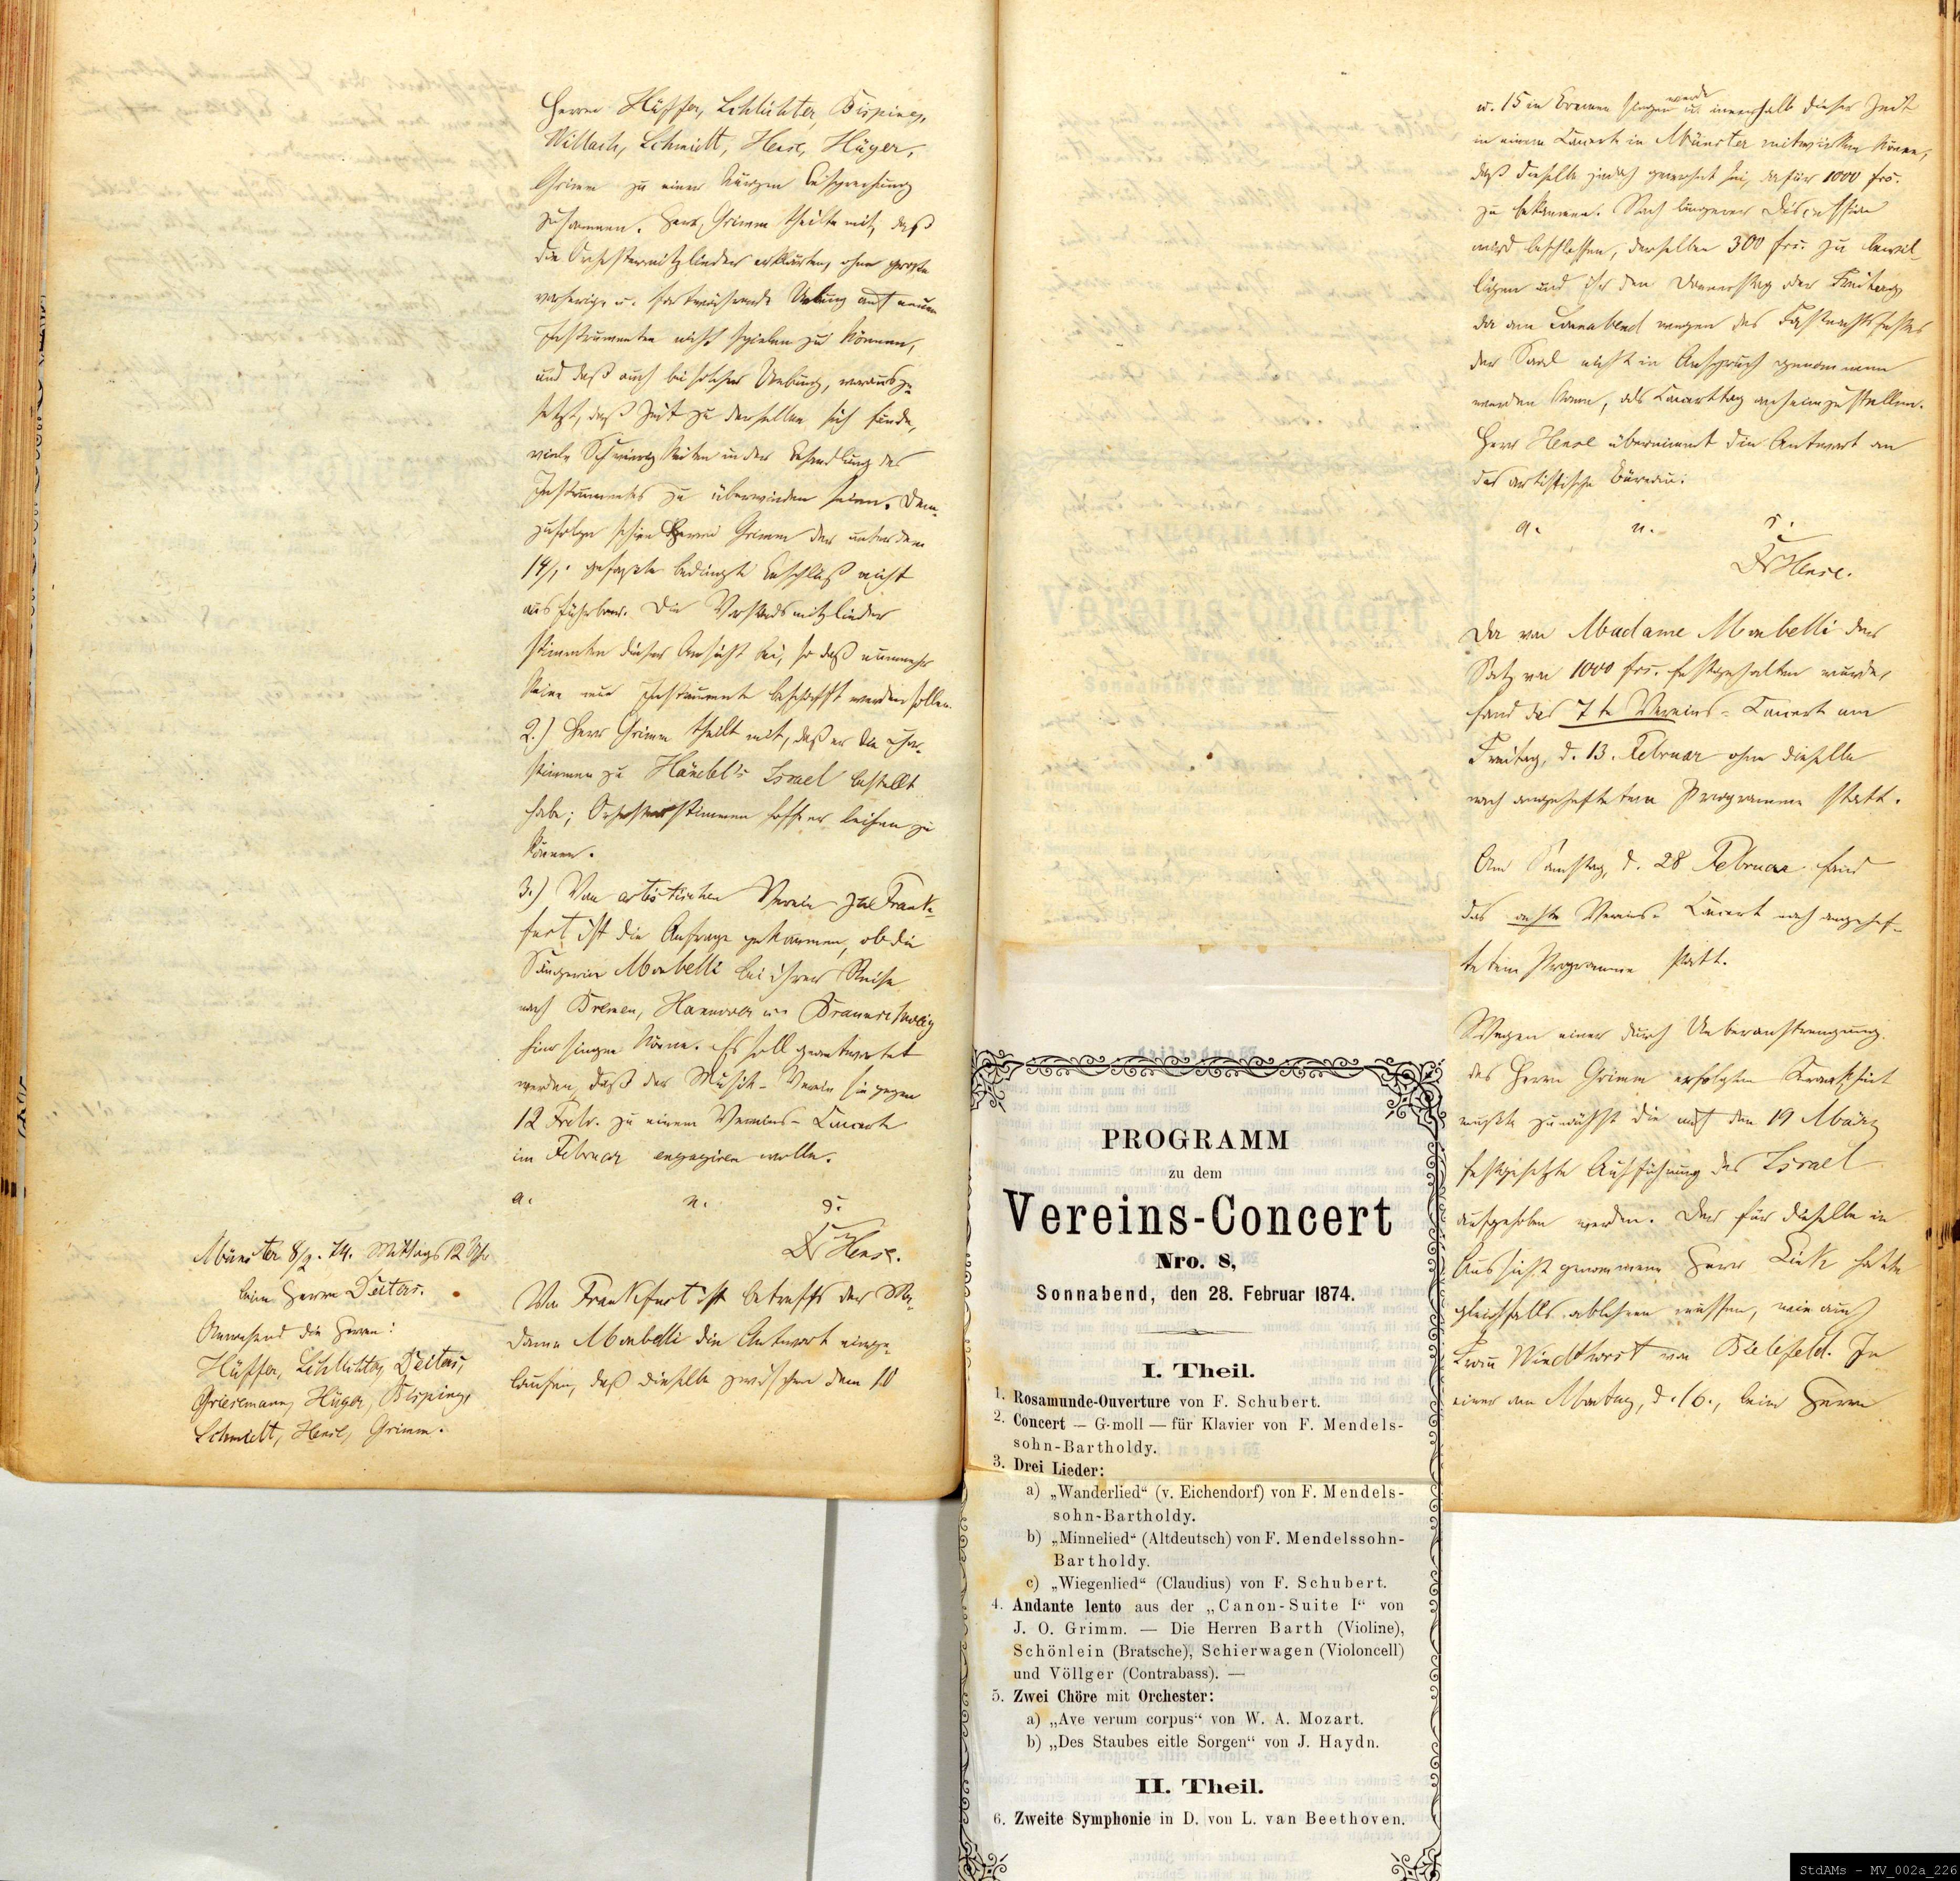 Herren Hüffer, Schlichter, Bisping,
Wittach, Schmidt, Hense, Hüger,
Grimm zu einer kurzen Besprechung
zusammen. Herr Grimm theilte mit, daß
die Orchestermitglieder erklärten, ohne große
vorherige u. fortwährende Uebung auf neuen
Instrumenten nicht spielen zu können,
und daß auch bei solcher Uebung, vorausge-
setzt, daß Zeit zu derselben sich finde,
viele Schwierigkeiten in der Behandlung des
Instrumentes zu überwinden seien. Dem-
zufolge schien Herrn Grimm der unter dem
14/1. gefaßte bedingte Beschluß nicht
ausführbar. Die Vorstandsmitglieder
stimmten dieser Ansicht bei, so daß nunmehr
keine neue Instrumente beschafft werden sollen.
2.) Herr Grimm theilt mit, daß er die Chor-
stimmen zu Händel's Israel bestellt
habe; Orchesterstimmen hofft er leihen zu
können.
3.) Vom artistischen Verein zu Frank-
furt ist die Anfrage gekommen, ob die
Sängerin Monbelli bei ihrer Reise
nach Bremen, Hannover u. Braunschweig
hier singen könne. Es soll geantwortet
werden, daß der Musik-Verein sie gegen
12 Frdr. zu einem Vereins-Concerte
im Februar engagiren wolle.
a. u. s.
Dr Hense.
Von Frankfurt ist betreffs der Ma-
dame Monbelli die Antwort einge-
laufen, daß dieselbe zwischen dem 10
Münster 8/2. 74. Mittags 12 Uhr
beim Herrn Deiters.
Anwesend die Herren:
Hüffer, Schlichter, Deiters,
Griesemann, Hüger, Bisping,
Schmidt, Hense, Grimm.
u. 15 in Bremen singen werde u. innerhalb dieser Zeit
in einem Concert in Münster mitwirken könne,
daß dieselbe jedoch gewohnt sei, dafür 1000 frs.
zu bekommen. Nach längerer Discussion
wird beschlossen, derselben 300 frs. zu bewil-
ligen und ihr den Donnerstag oder Freitag,
da am Sonnabend wegen des Fastnachtsfestes
der Saal nicht in Anspruch genommen
werden kann, als Concerttag anheimzustellen.
Herr Hense übernimmt die Antwort an
das artistische Büreau.
a. u. s.
Dr Hense.
Da von Madame Monbelli der
Satz von 1000 frs. festgehalten wurde,
fand das 7te Vereins-Concert am
Freitag, d. 13. Februar ohne dieselbe
nach angeheftetem Programme statt.
Am Samstag, d. 28 Februar fand
das achte Vereins-Concert nach angehef-
tetem Programme statt.
Wegen einer durch Ueberanstrengung
des Herrn Grimm erfolgten Krankheit
mußte zunächst die auf den 19 März
festgesetzte Aufführung des Israel
aufgehoben werden. Der für dieselbe in
Aussicht genommene Herr Link hatte
gleichfalls ablehnen müssen, wie auch
Frau Windthorst von Bielefeld. In
einer am Montag, d. 16., beim Herrn
PROGRAMM
zu dem
Vereins-Concert
Nro. 8,
Sonnabend, den 28. Februar 1874.
I. Theil.
1. Rosamunde-Ouverture von F. Schubert.
2. Concert — G-moll — für Klavier von F. Mendels-
sohn-Bartholdy.
3. Drei Lieder:
a) „Wanderlied“ (v. Eichendorf) von F. Mendels-
sohn-Bartholdy.
b) „Minnelied“ (Altdeutsch) von F. Mendelssohn-
Bartholdy.
c) „Wiegenlied“ (Claudius) von F. Schubert.
4. Andante lento aus der „Canon-Suite I“ von
J. O. Grimm. — Die Herren Barth (Violine),
Schönlein (Bratsche), Schierwagen (Violoncell)
und Völlger (Contrabass). —
5. Zwei Chöre mit Orchester:
a) „Ave verum corpus“ von W. A. Mozart.
b) „Des Staubes eitle Sorgen“ von J. Haydn.
II. Theil.
6. Zweite Symphonie in D. von L. van Beethoven.
StdAMs - MV_002a_226